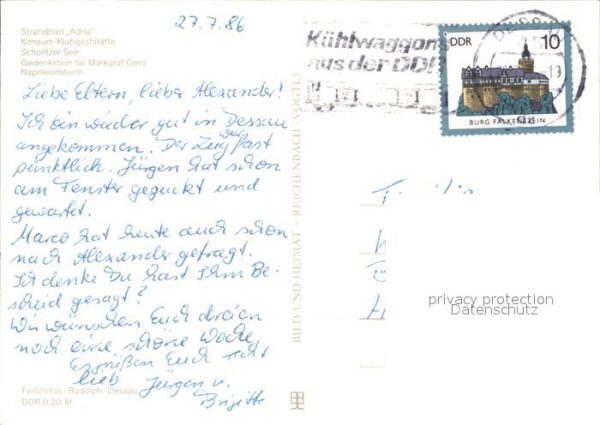 27.7.86
Strandbad „Adria"
Konsum-Klubgaststätte
Scholitzer See
Gedenkstein für Markgraf Gero
Napoleonsturm
Liebe Eltern, lieber Alexander!
Ich bin wieder gut in Dessau
angekommen. Der Zug war fast
pünktlich. Jürgen hat schon
am Fenster geguckt und
gewartet.
Marco hat heute auch schon
nach Alexander gefragt.
Ich denke Du hast Ihm Be-
scheid gesagt?
Wir wünschen Euch dreien
noch eine schöne Woche,
Es grüßen Euch recht
lieb Jürgen u.
Brigitte
Farbfotos: Rudolph, Dessau
DDR 0,20 M
BILD UND HEIMAT · REICHENBACH (VOGTL)
Kühlwaggons
aus der DDR
DDR 10
BURG FALKENSTEIN
privacy protection
Datenschutz